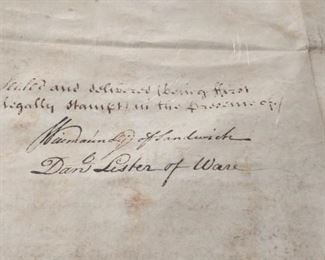 Sealed and delivered (being first
legally stampt) in the Presence of
of Sandwich
Dan Lester of Ware